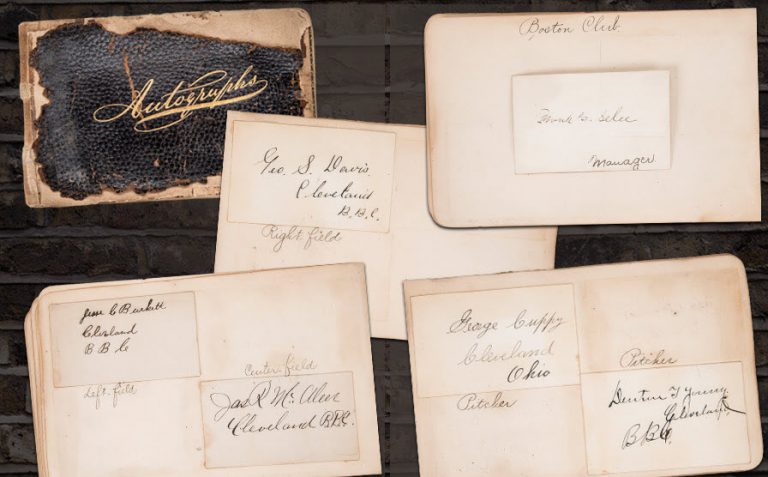 Autographs
Boston Club.
Frank G. Selee
Manager
Geo. S. Davis
Cleveland
B.B.C.
Right field
Jesse C Burkett
Cleveland
B B C
Left field
Center field
Jas R Mc Aleer
Cleveland B.B.C.
George Cuppy
Cleveland
Ohio
Pitcher
Pitcher
Denton T Young
Cleveland
B.B.C.